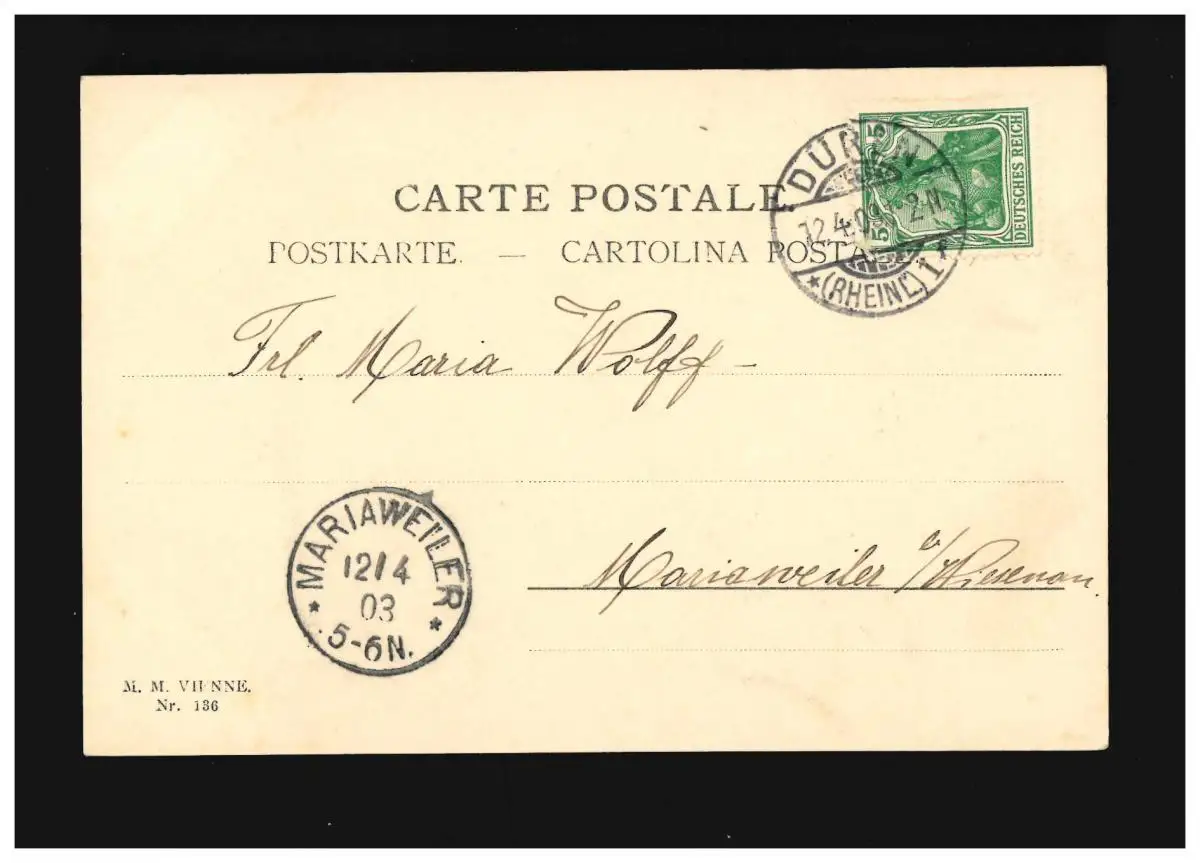 CARTE POSTALE.
POSTKARTE. — CARTOLINA POSTA
DÜREN
12.4.03 2-N.
* (RHEINL.) 1 f
5 5 DEUTSCHES REICH
Frl. Maria Wolff -
MARIAWEILER
12/4
03
* 5-6N. *
Mariaweiler b/
M. M. VIENNE.
Nr. 136